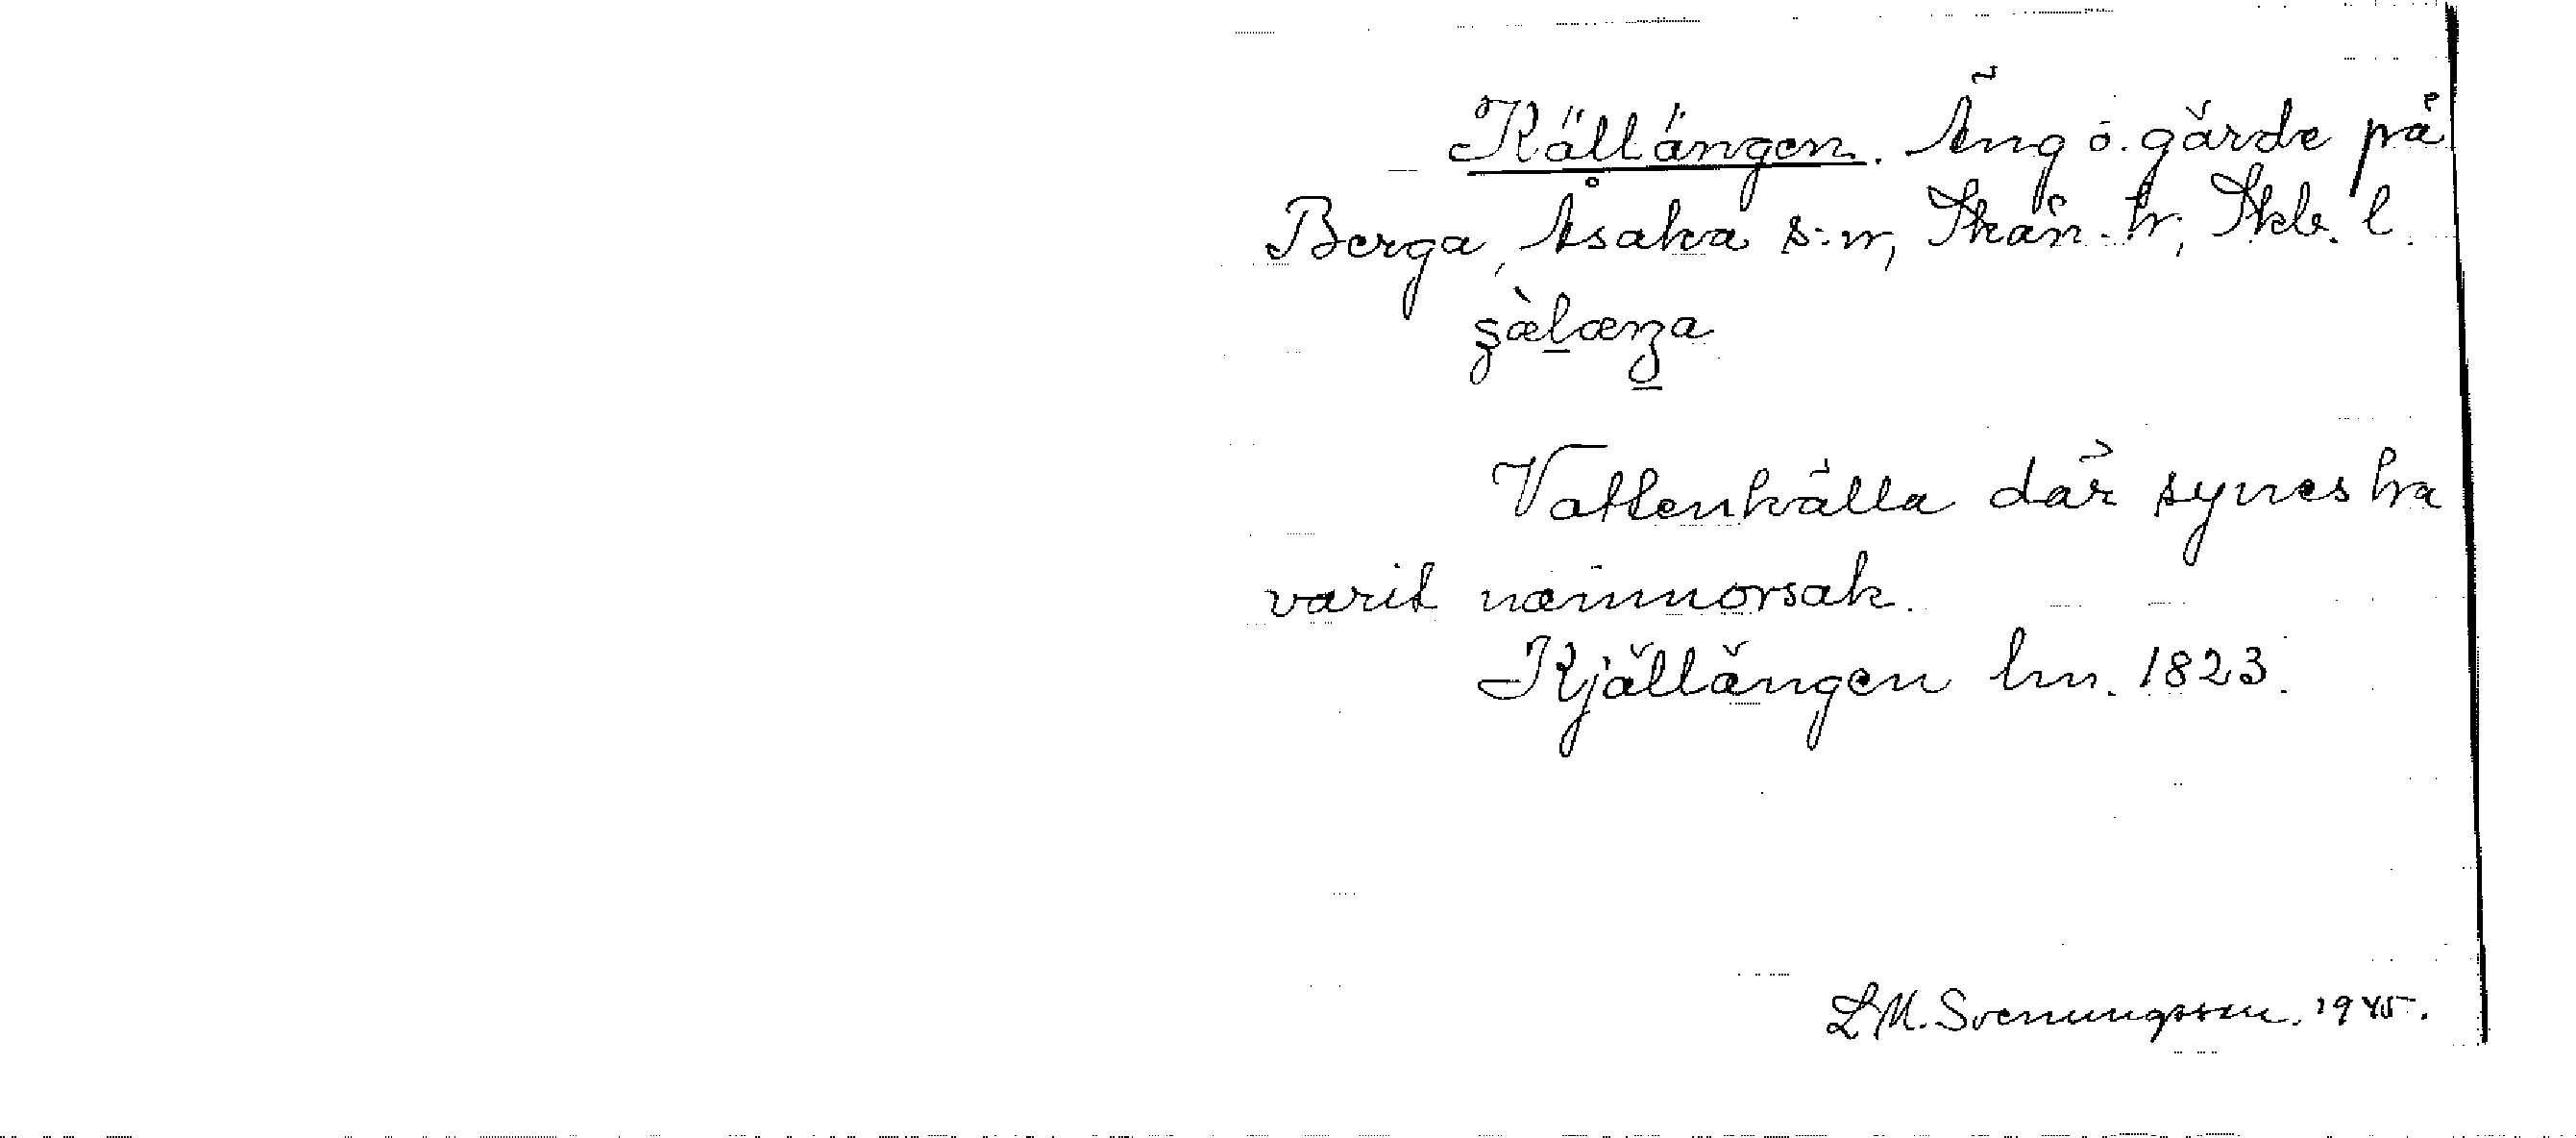 Källängen. Äng o. gärde på
Berga, Åsaka s:n, Skån. hr, Skb. l.
Vattenkälla där synes ha
varit namnorsak.
Kjällängen hm. 1823.
L M. Svenungsson. 1945.